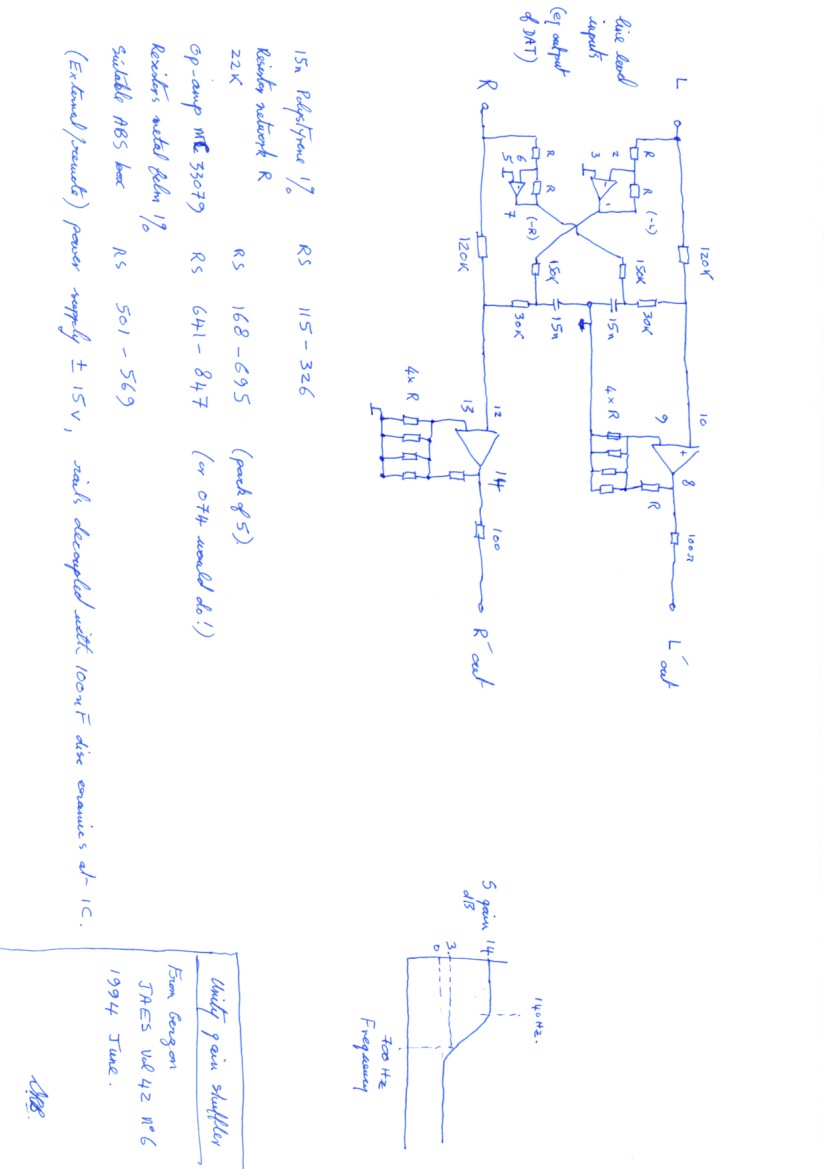 line level
inputs
(eg output
of DAT)
L
R
120K
R
R
2
3
1
(-L)
R
R
6
5
7
(-R)
120K
150K
150K
30K
15n
15n
30K
10
9
8
4 x R
R
100Ω
L´out
12
13
14
4 x R
100
R´out
15n Polystyrene 1% RS 115-326
Resistor network R
22K RS 168-695 (pack of 5)
Op-amp MC 33079 RS 641-847 (or 074 would do!)
Resistors metal film 1%
Suitable ABS box RS 501-569
(External/remote) power supply ± 15v, rails decoupled with 100nF disc ceramics at IC.
S gain
dB
14
3
0
140Hz.
700 Hz
Frequency
Unity gain shuffler
From Gerzon
JAES Vol 42 No 6
1994 June.